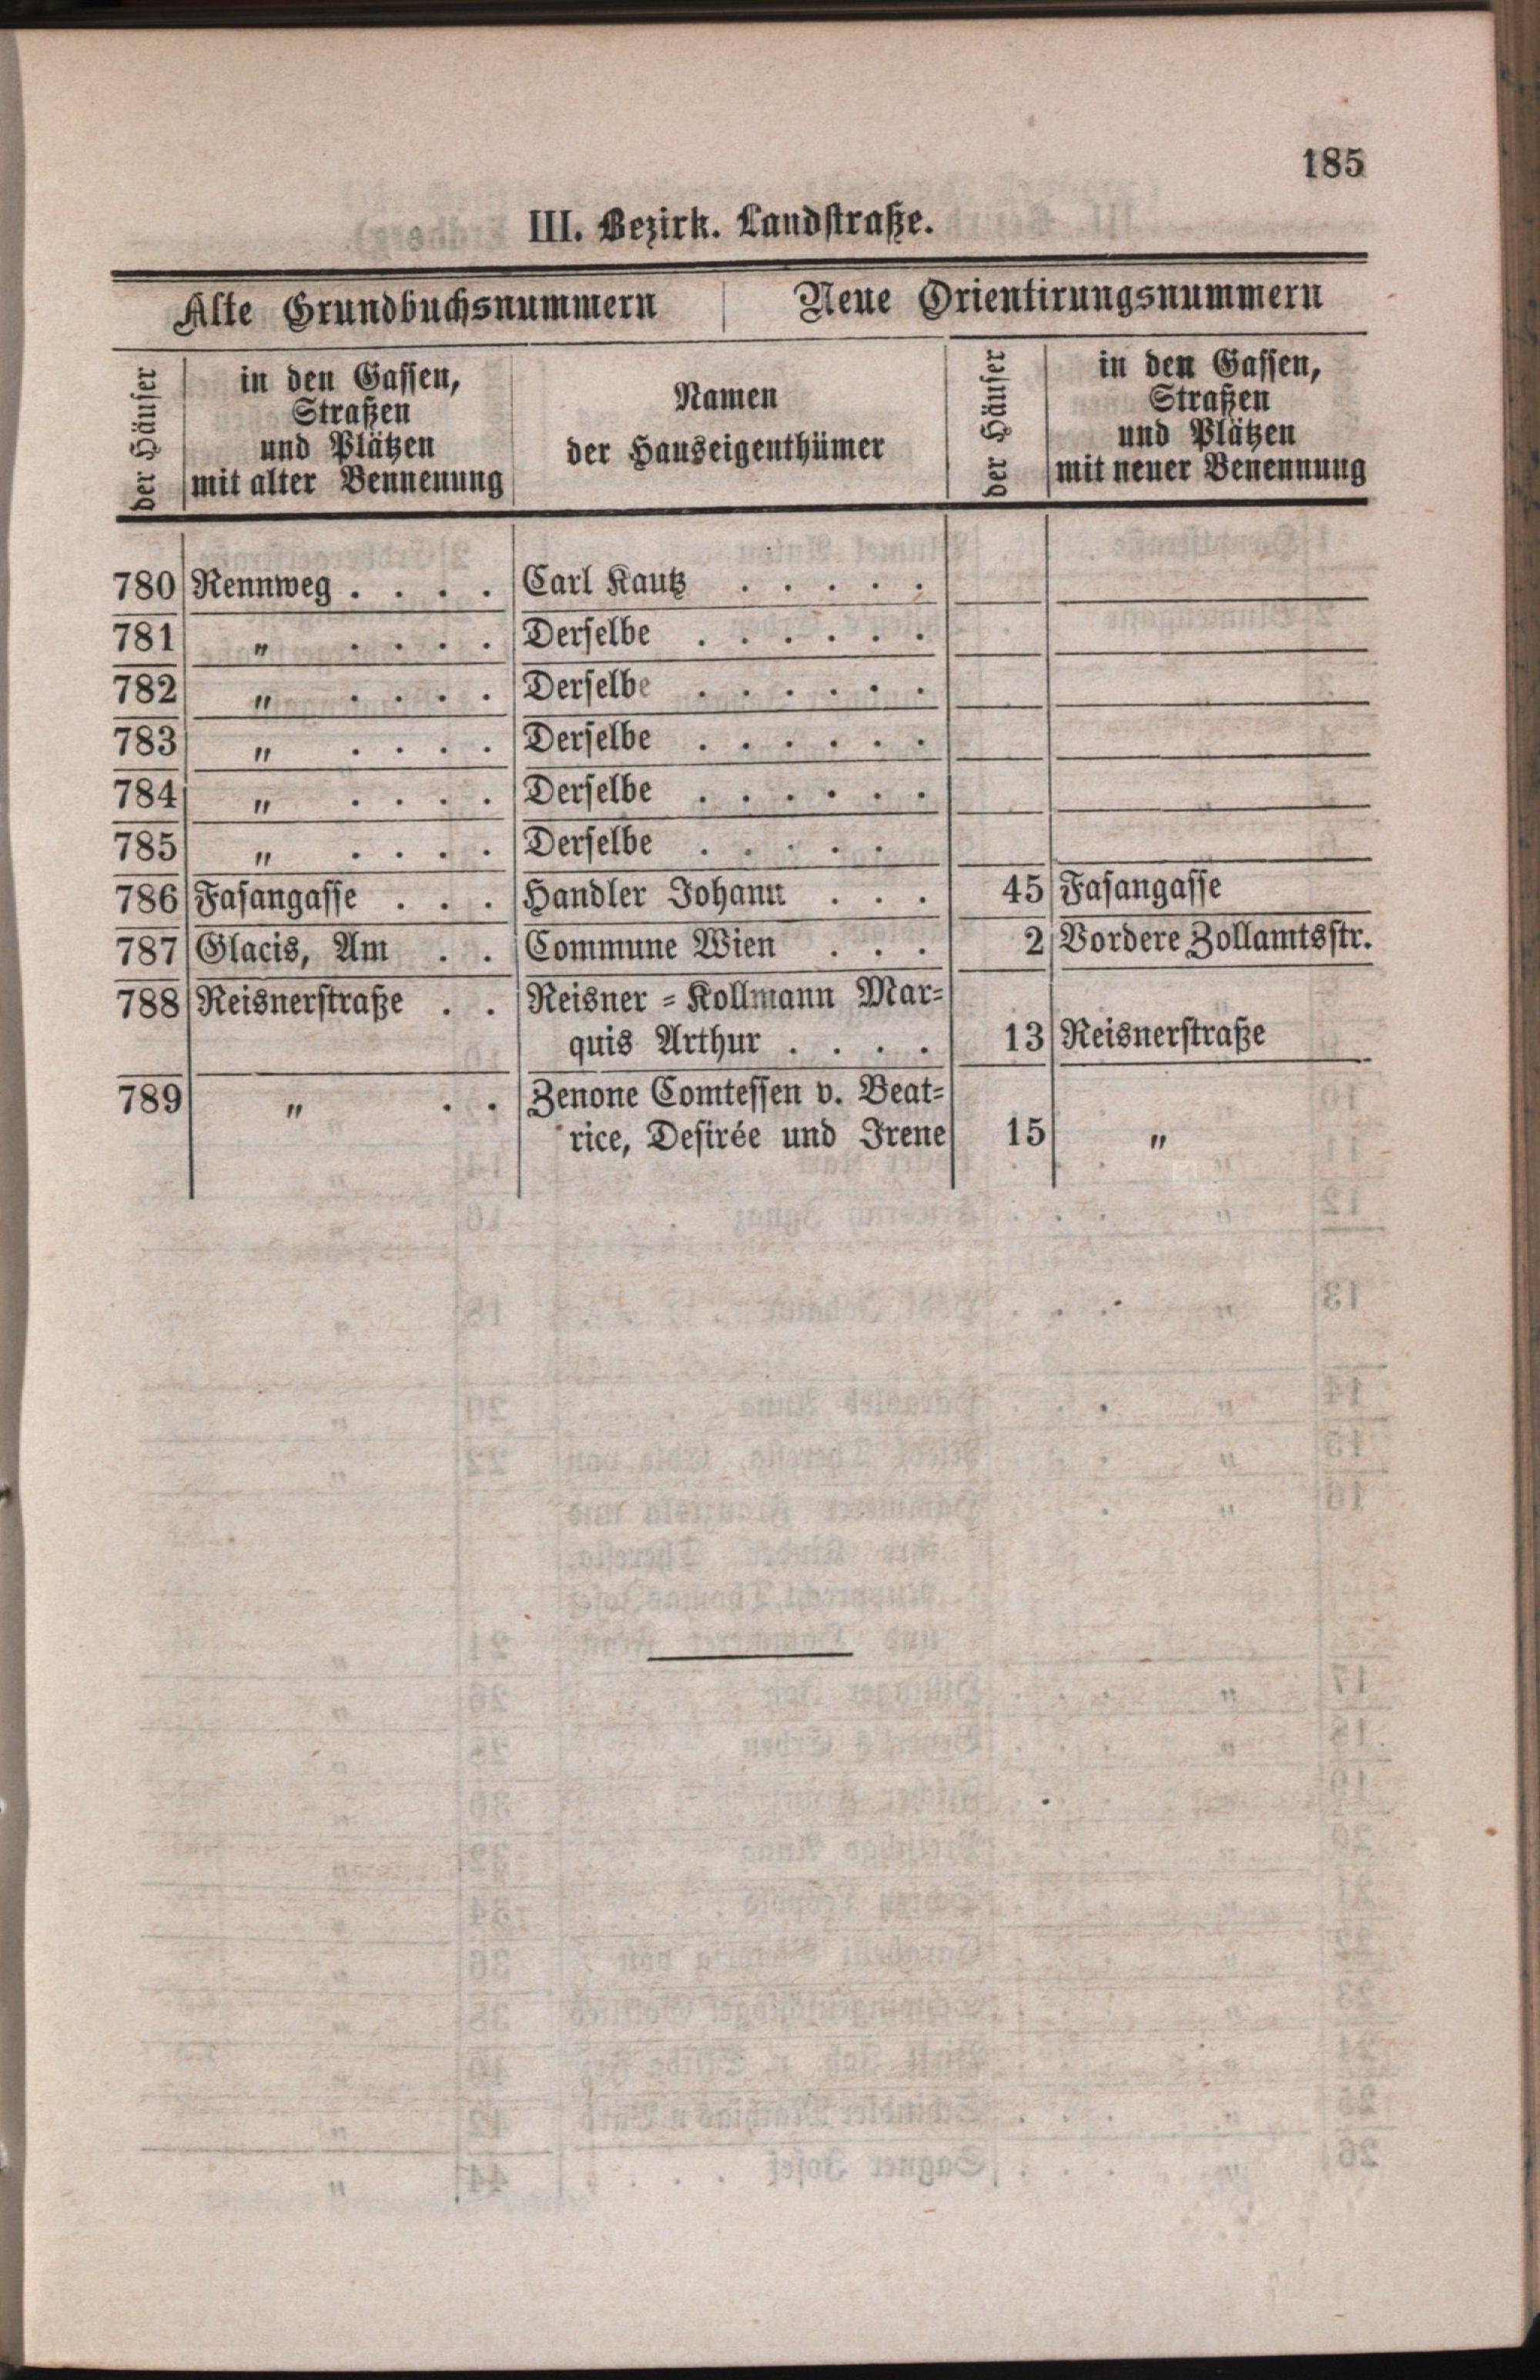 185
III. Bezirk. Landstraße.
Alte Grundbuchsnummern | Neue Orientirungsnummern
der Häuser
in den Gassen,
Straßen
und Plätzen
mit alter Bennenung
Namen
der Hauseigenthümer
der Häuser
in den Gassen,
Straßen
und Plätzen
mit neuer Benennung
780 Rennweg . . . . Carl Kautz . . . . .
781 " . . . . Derselbe . . . . . .
782 " . . . . Derselbe . . . . . .
783 " . . . . Derselbe . . . . . .
784 " . . . . Derselbe . . . . . .
785 " . . . . Derselbe . . . . .
786 Fasangasse . . . Handler Johann . . . 45 Fasangasse
787 Glacis, Am . . Commune Wien . . . 2 Vordere Zollamtsstr.
788 Reisnerstraße . . Reisner-Kollmann Mar-
quis Arthur . . . . 13 Reisnerstraße
789 " . . Zenone Comtessen v. Beat-
rice, Desirée und Irene 15 "